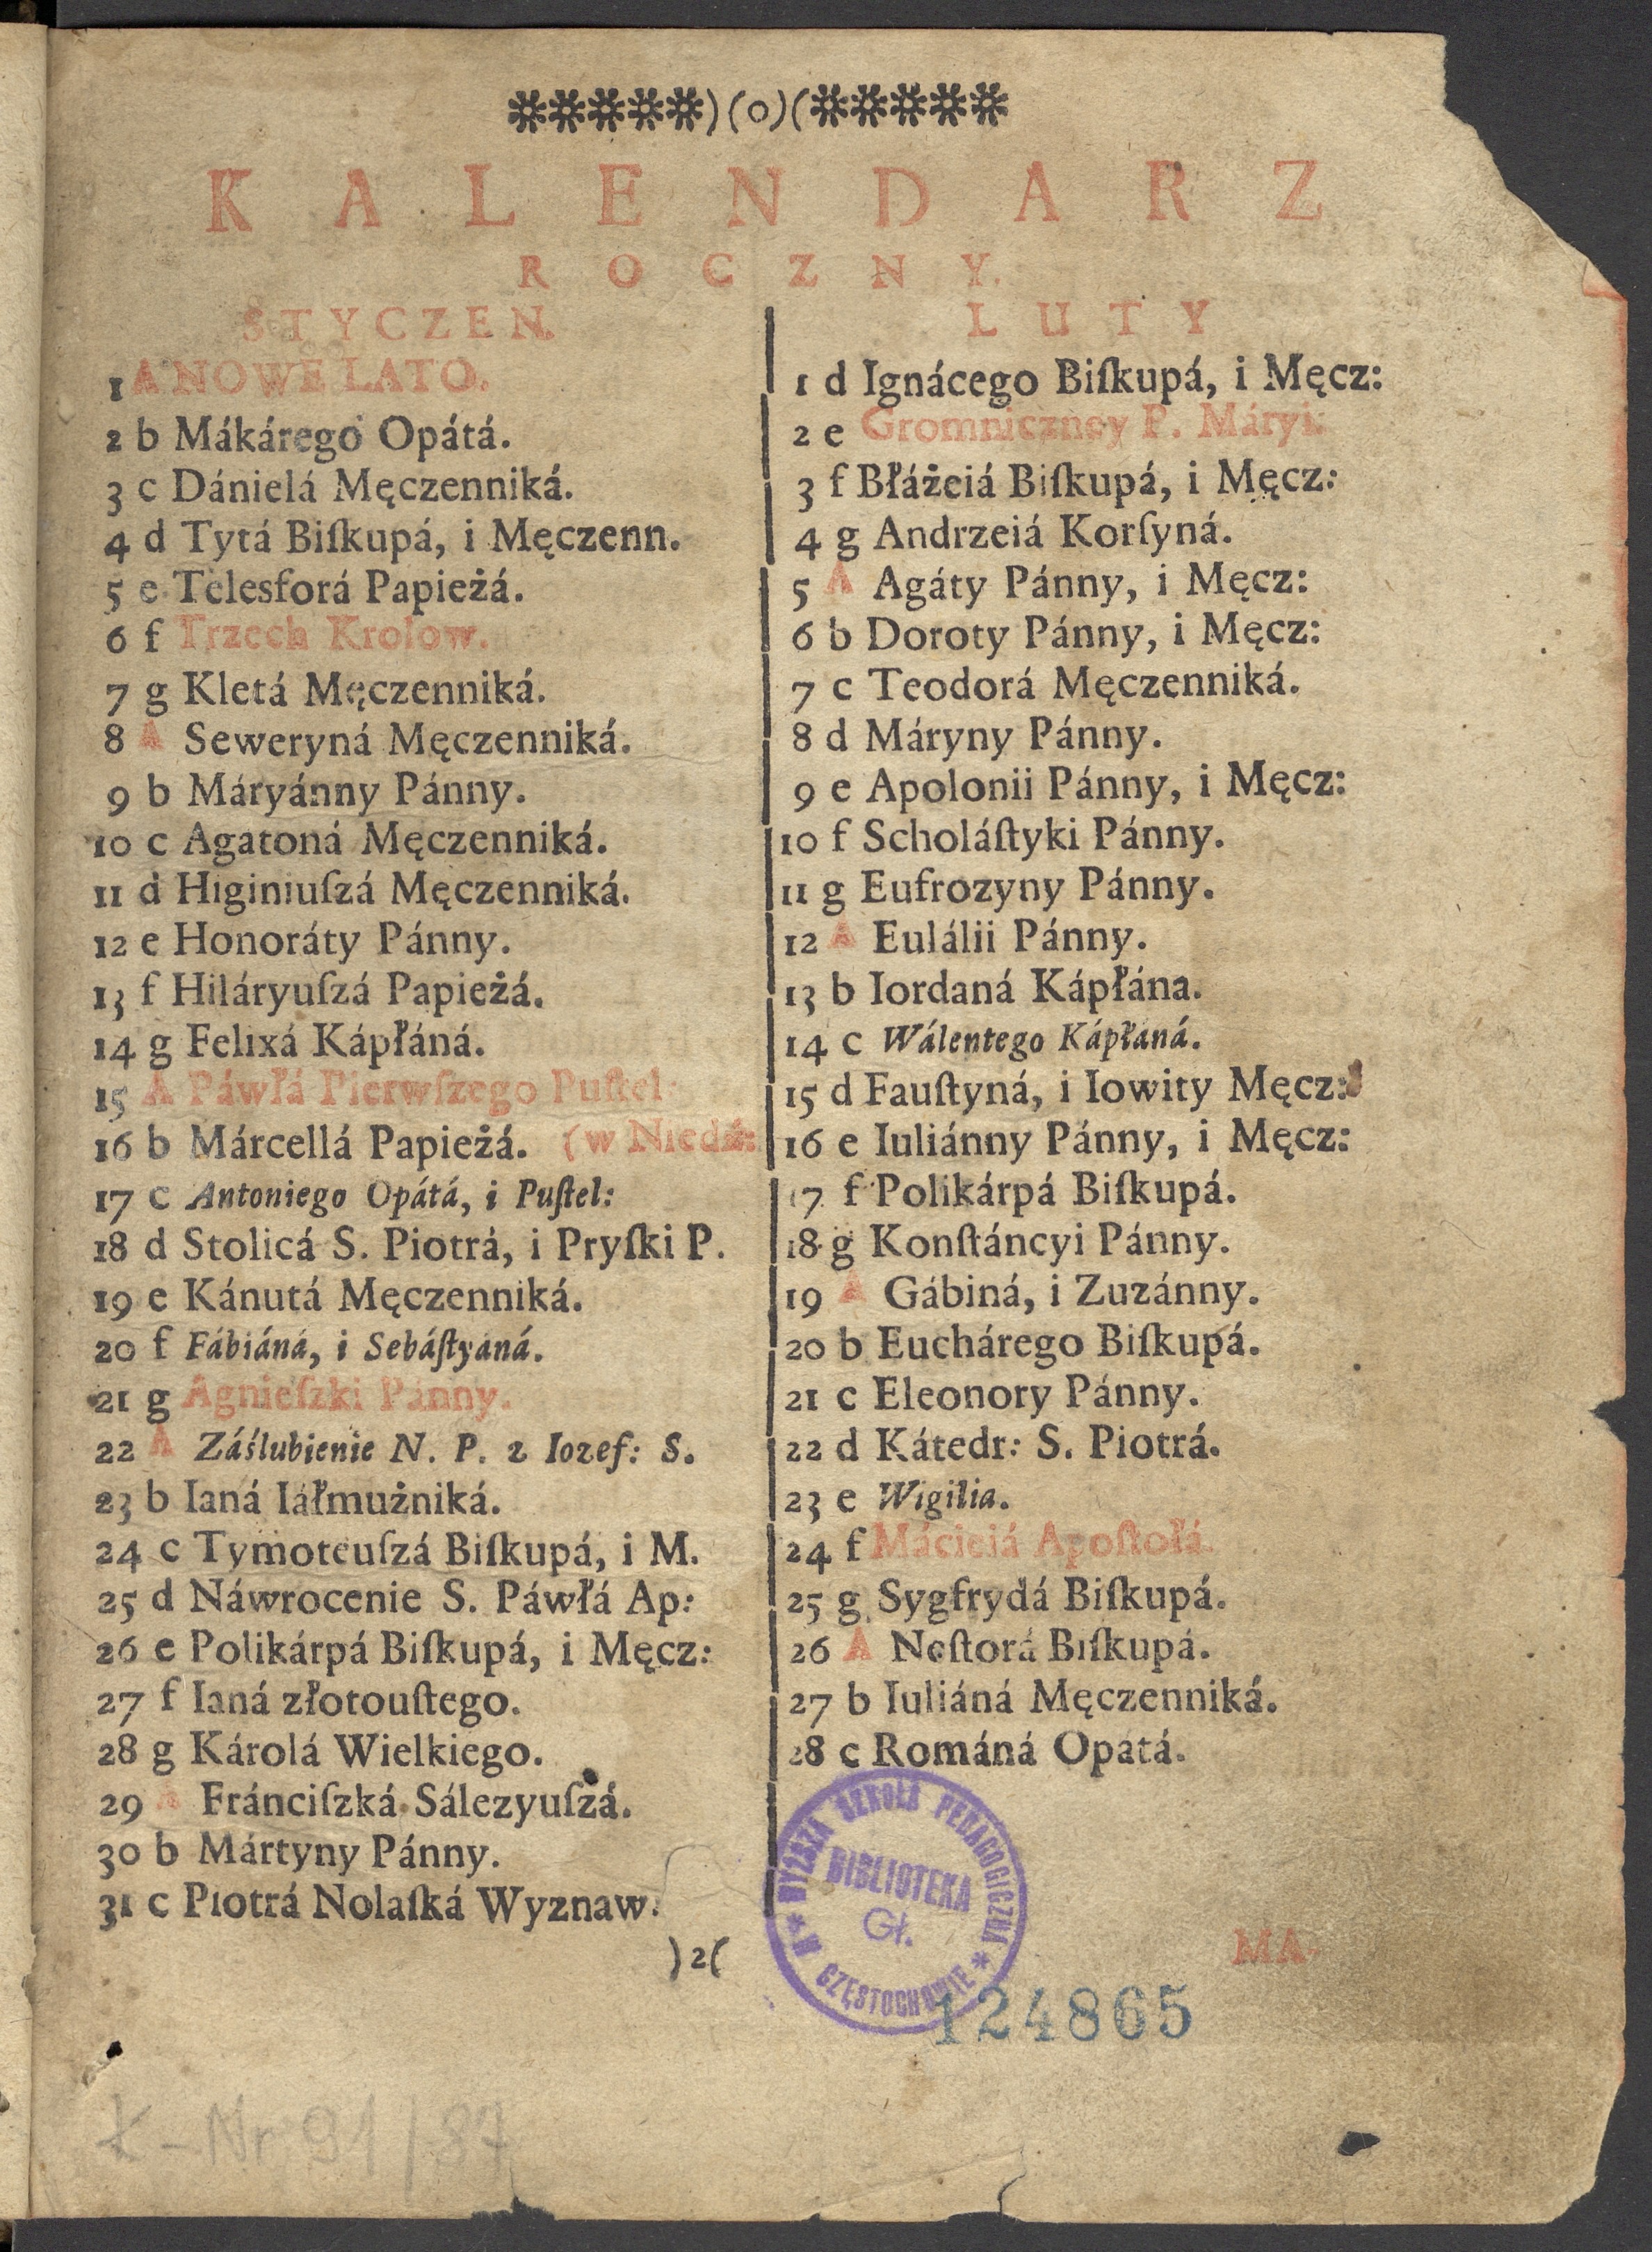 *****)(o)(*****
KALENDARZ
ROCZNY.
STYCZEN.
1 A NOWE LATO.
2 b Mákárego Opátá.
3 c Dánielá Męczenniká.
4 d Tytá Biſkupá, i Męczenn.
5 e Telesforá Papieżá.
6 f Trzech Krolow.
7 g Kletá Męczenniká.
8 A Seweryná Męczenniká.
9 b Máryánny Pánny.
10 c Agatoná Męczenniká.
11 d Higiniuſzá Męczenniká.
12 e Honoráty Pánny.
13 f Hiláryuſzá Papieżá.
14 g Felixá Kápłáná.
15 A Páwłá Pierwſzego Puſtel:
16 b Márcellá Papieżá. (w Niedź:
17 c Antoniego Opátá, i Puſtel:
18 d Stolicá S. Piotrá, i Pryſki P.
19 e Kánutá Męczenniká.
20 f Fábiáná, i Sebáſtyaná.
21 g Agnieſzki Pánny.
22 A Záślubienie N. P. z Iozef: S.
23 b Ianá Iáłmużniká.
24 c Tymoteuſzá Biſkupá, i M.
25 d Náwrocenie S. Páwłá Ap:
26 e Polikárpá Biſkupá, i Męcz:
27 f Ianá złotouſtego.
28 g Károlá Wielkiego.
29 A Fránciſzká Sálezyuſzá.
30 b Mártyny Pánny.
31 c Piotrá Nolaſká Wyznaw:
LUTY
1 d Ignácego Biſkupá, i Męcz:
2 e Gromniczney P. Máryi.
3 f Błáżeiá Biſkupá, i Męcz:
4 g Andrzeiá Korſyná.
5 A Agáty Pánny, i Męcz:
6 b Doroty Pánny, i Męcz:
7 c Teodorá Męczenniká.
8 d Máryny Pánny.
9 e Apolonii Pánny, i Męcz:
10 f Scholáſtyki Pánny.
11 g Eufrozyny Pánny.
12 A Eulálii Pánny.
13 b Iordaná Kápłána.
14 c Wálentego Kápłaná.
15 d Fauſtyná, i Iowity Męcz:
16 e Iuliánny Pánny, i Męcz:
17 f Polikárpá Biſkupá.
18 g Konſtáncyi Pánny.
19 A Gábiná, i Zuzánny.
20 b Euchárego Biſkupá.
21 c Eleonory Pánny.
22 d Kátedr: S. Piotrá.
23 e Wigilia.
24 f Máciciá Apoſtołá.
25 g Sygfrydá Biſkupá.
26 A Neſtorá Biſkupá.
27 b Iuliáná Męczenniká.
28 c Románá Opátá.
)2(
MA-
WYŻSZA SZKOŁA PEDAGOGICZNA
BIBLIOTEKA
Gł.
W CZĘSTOCHOWIE
124865
Ł-Nr 91/87